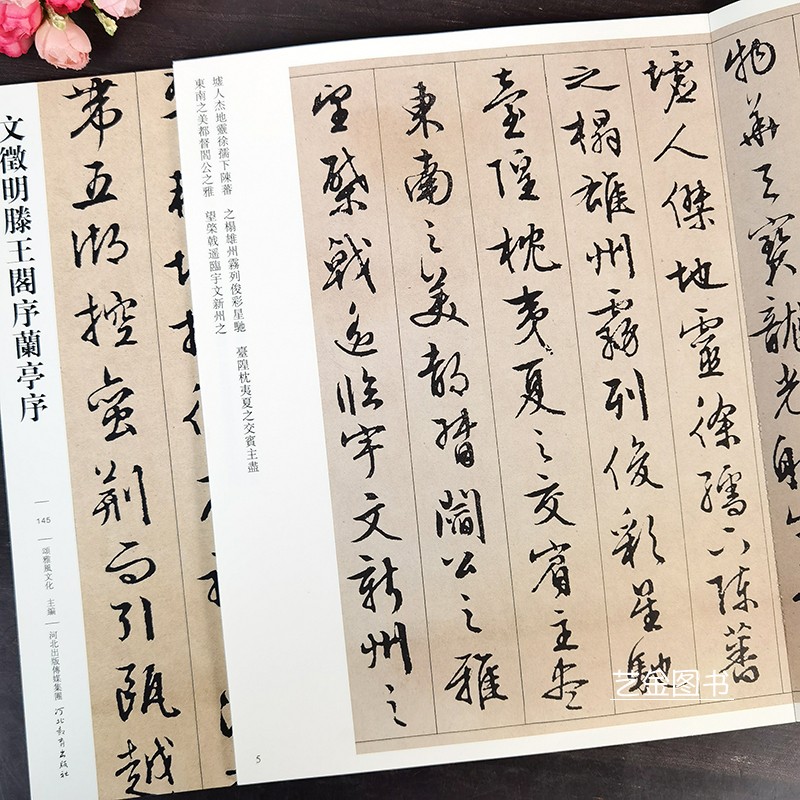 物華天寶龍光射
墟人傑地靈徐孺下陳蕃
之榻雄州霧列俊彩星馳
臺隍枕夷夏之交賓主盡
東南之美都督閻公之雅
望棨戟遙臨宇文新州之
墟人杰地靈徐孺下陳蕃 之榻雄州霧列俊彩星馳 臺隍枕夷夏之交賓主盡
東南之美都督閻公之雅 望棨戟遥臨宇文新州之
5
帶五湖控蠻荊而引甌越
文徵明滕王閣序蘭亭序
145
頌雅風文化 主編
河北出版傳媒集團
河北教育出版社
艺金图书